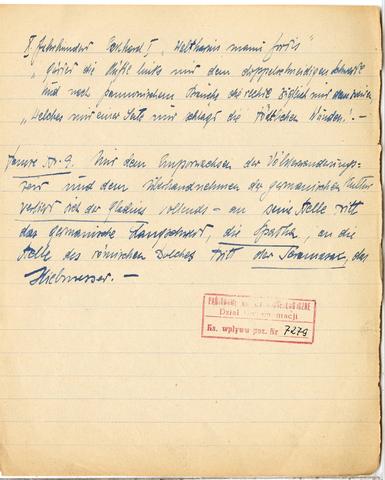 X Jahrhundert Ekkehard I, "Waltharius manu fortis"
"Gürtet die Hüfte links mit dem doppelschneidigen Schwerte
und nach pannonischem Brauche die rechte zugleich mit dem
"Welches mit einer Seite nur schlägt die tödlichen Wunden". —
No. 9. Mit dem Emporwachsen der Völkerwanderungs-
zeit und dem Überhandnehmen der germanischen
verliert sich der Gladius vollends — an seine Stelle tritt
das germanische Langschwert, die Spatha, an die
Stelle des römischen Dolches tritt der Scramasax, das
Hiebmesser. —
PAŃSTWOWE
Dział
Ks. wpływu poz. Nr 7279